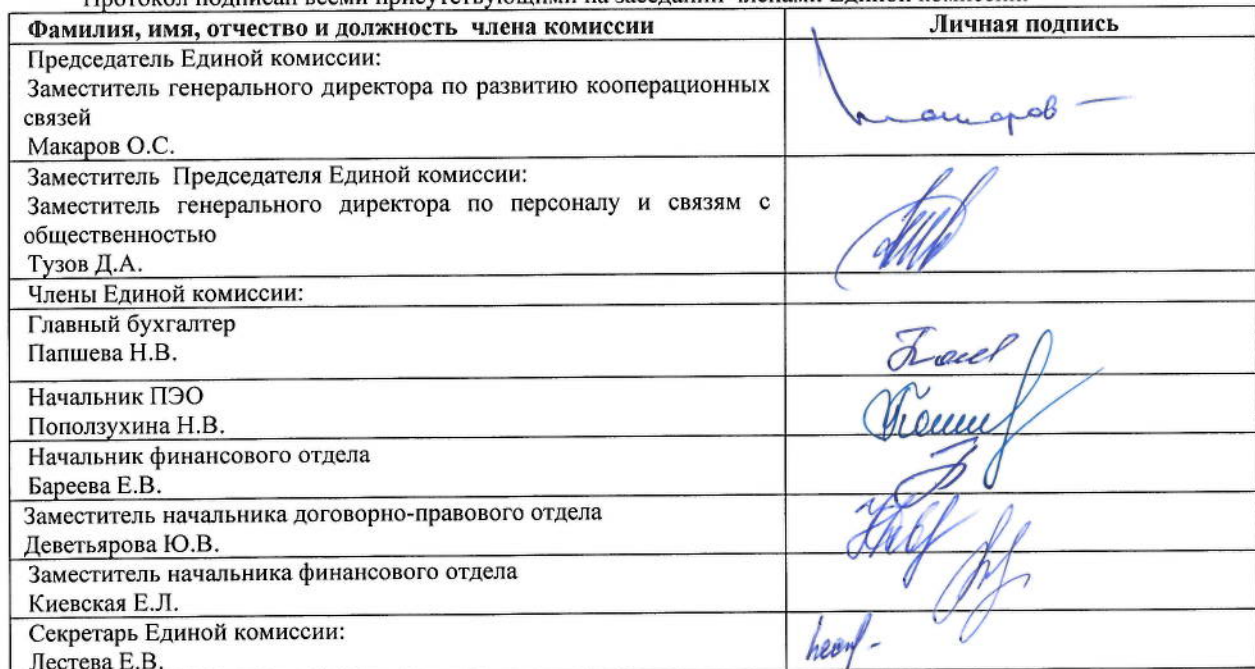 Протокол подписан всеми присутствующими на заседании членами Единой комиссии
Фамилия, имя, отчество и должность члена комиссии
Личная подпись
Председатель Единой комиссии:
Заместитель генерального директора по развитию кооперационных
связей
Макаров О.С.
Заместитель Председателя Единой комиссии:
Заместитель генерального директора по персоналу и связям с
общественностью
Тузов Д.А.
Члены Единой комиссии:
Главный бухгалтер
Папшева Н.В.
Начальник ПЭО
Поползухина Н.В.
Начальник финансового отдела
Бареева Е.В.
Заместитель начальника договорно-правового отдела
Деветьярова Ю.В.
Заместитель начальника финансового отдела
Киевская Е.Л.
Секретарь Единой комиссии:
Лестева Е.В.